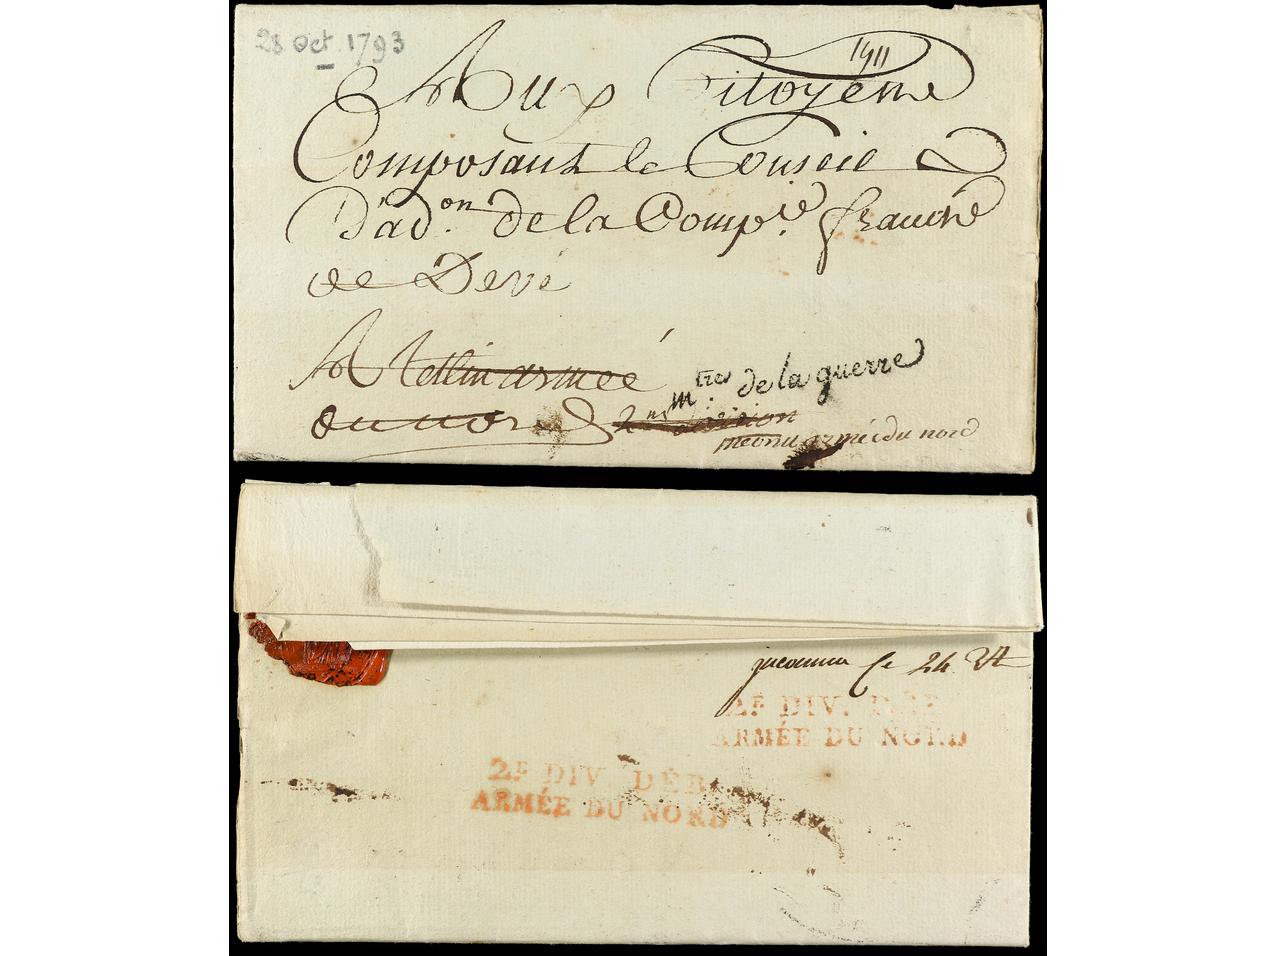 28 Oct 1793
1911
Aux Citoyens
Composant le Conseil
D'adon. de la Compie. franche
de Devé
A
armée
du nord 2me division
mtres de la guerre
inconnu armée du nord
inconnu le 24
2E DIV. DÉB
ARMÉE DU NORD
2E DIV. DÉB
ARMÉE DU NORD